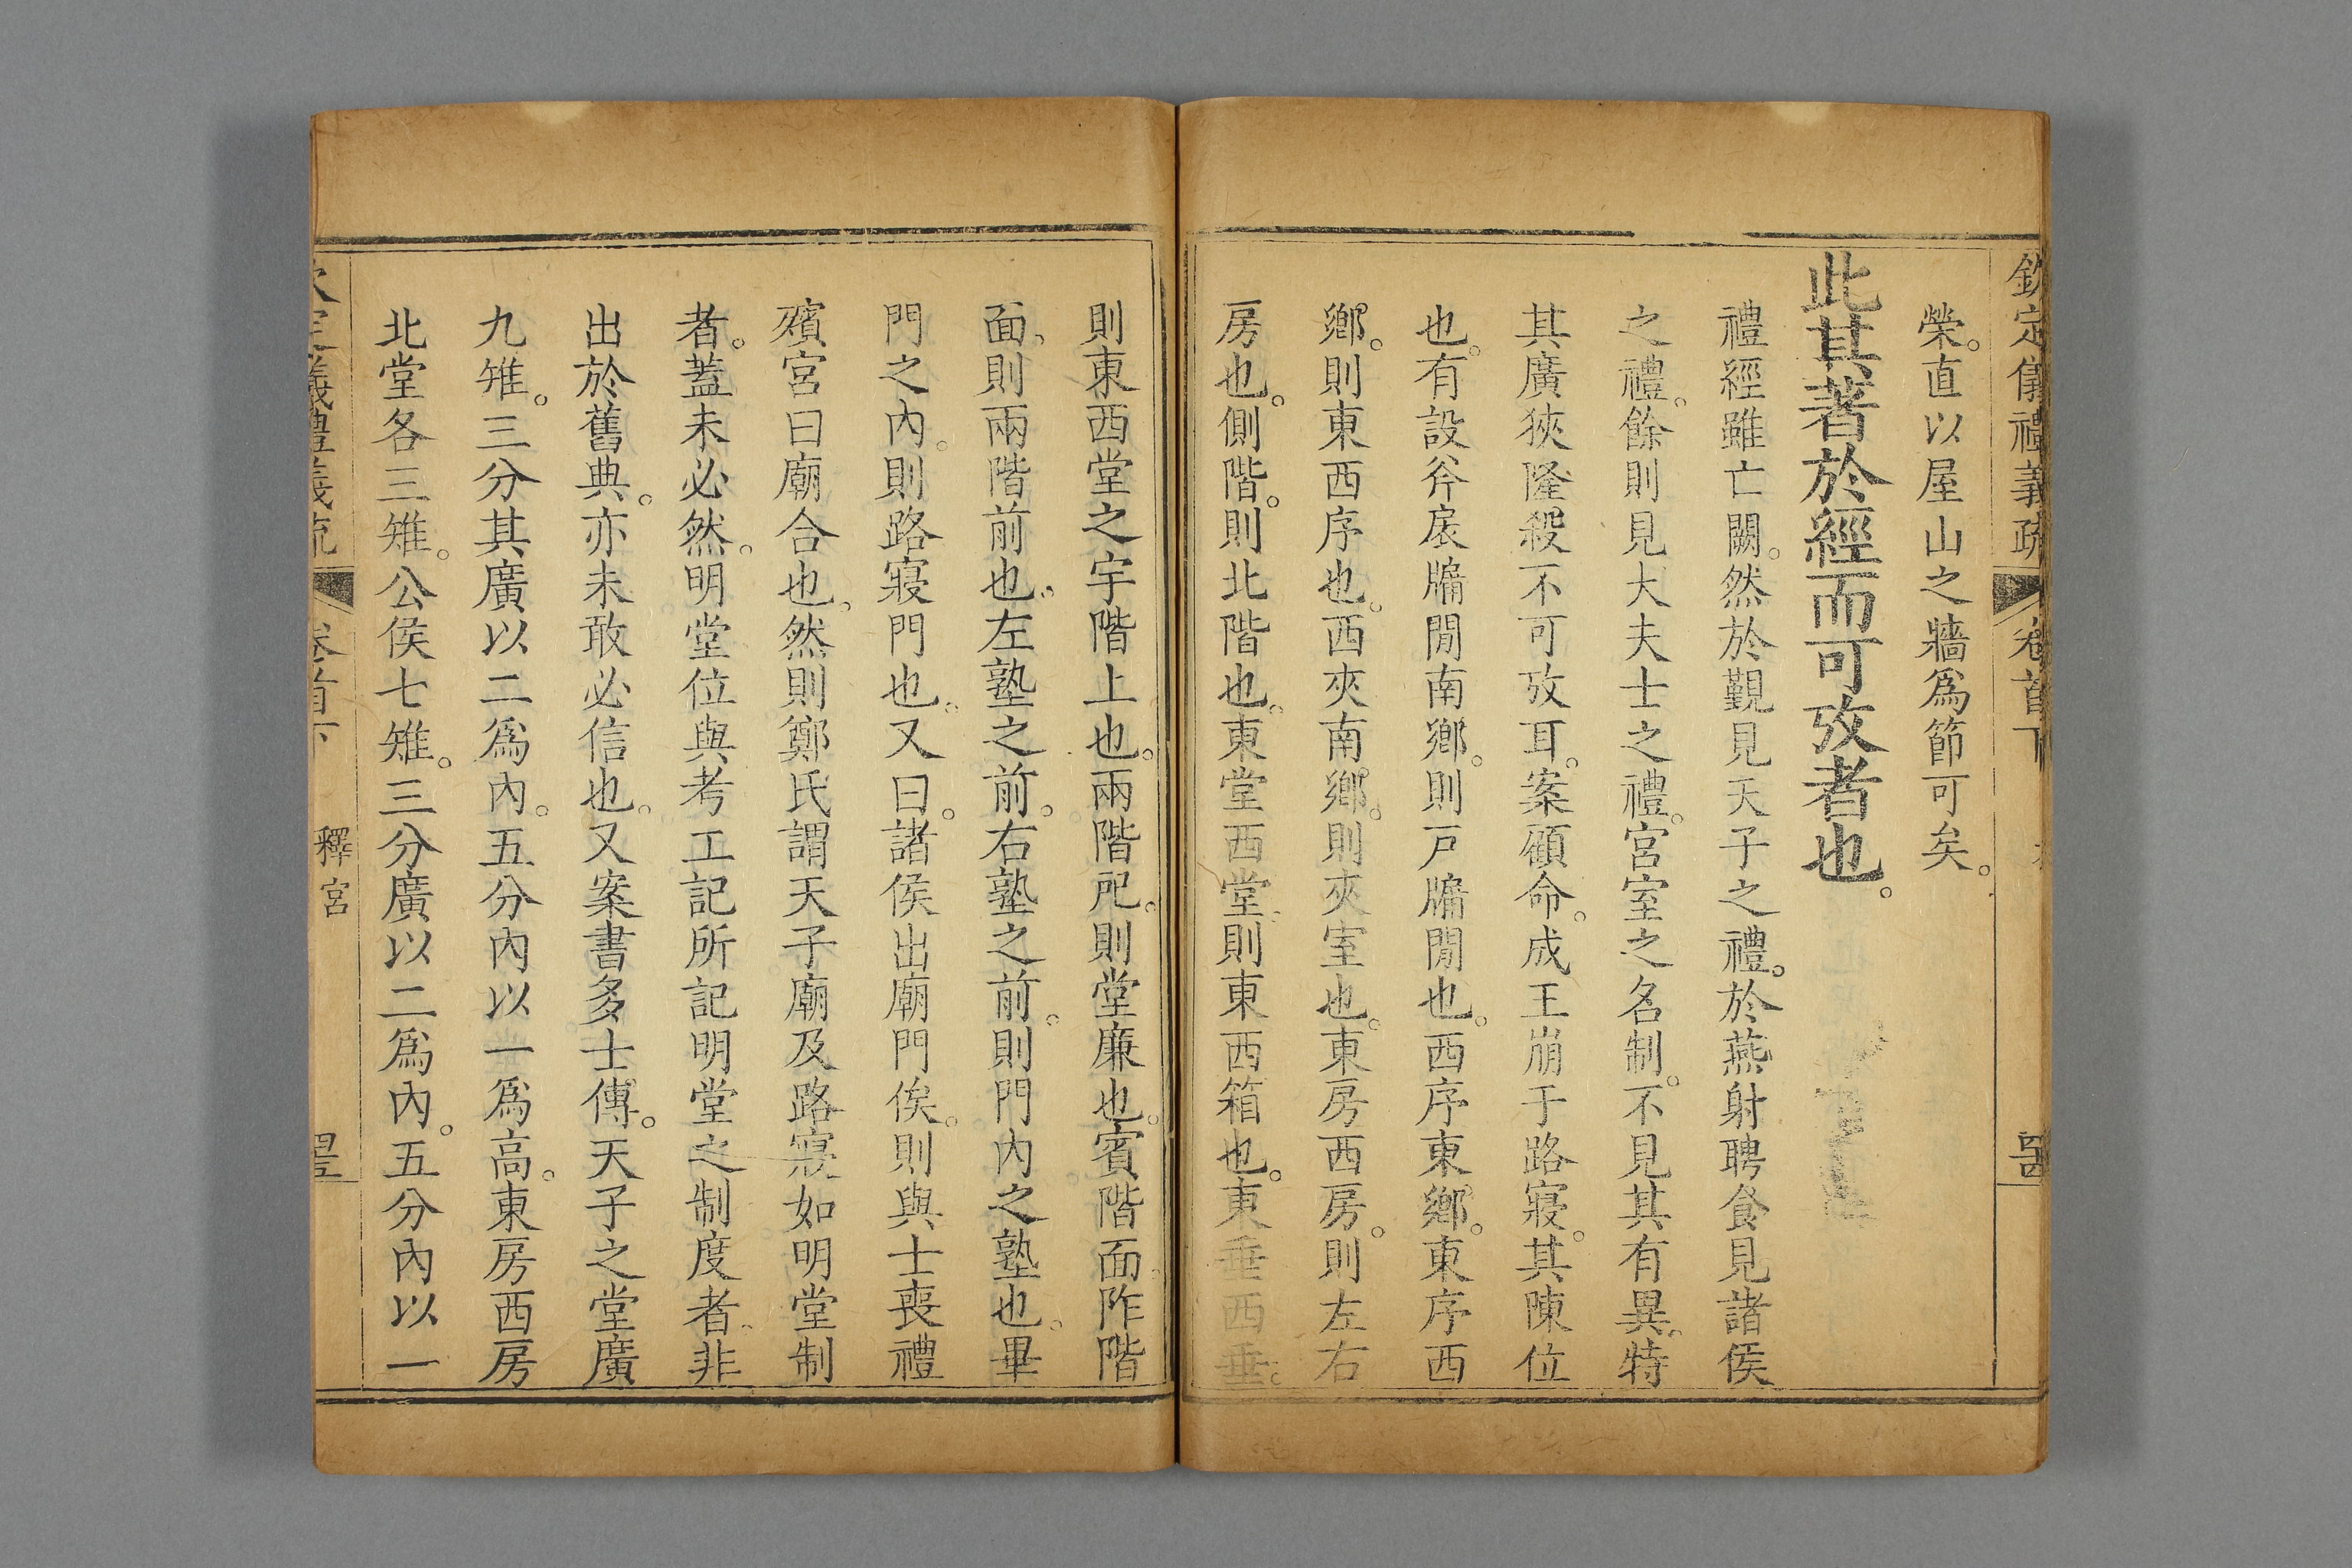 欽定儀禮義疏 卷首下
榮。直以屋山之牆爲節可矣。
此其著於經而可攷者也。
禮經雖亡闕。然於覲見天子之禮。於燕射聘食見諸侯
之禮。餘則見大夫士之禮。宮室之名制。不見其有異。特
其廣狹隆殺不可攷耳。案顧命。成王崩于路寢。其陳位
也。有設斧扆牖閒南鄉。則戸牖閒也。西序東鄉。東序西
鄉。則東西序也。西夾南鄉。則夾室也。東房西房。則左右
房也。側階。則北階也。東堂西堂。則東西箱也。東垂西垂。
則東西堂之宇階上也。兩階戺。則堂廉也。賓階面。阼階
面。則兩階前也。左塾之前。右塾之前。則門內之塾也。畢
門之內。則路寢門也。又曰。諸侯出廟門俟。則與士喪禮
殯宮曰廟合也。然則鄭氏謂天子廟及路寢如明堂制
者。蓋未必然。明堂位與考工記所記明堂之制度者。非
出於舊典。亦未敢必信也。又案書多士傳。天子之堂廣
九雉。三分其廣以二爲內。五分內以一爲高。東房西房
北堂各三雉。公侯七雉。三分廣以二爲內。五分內以一
欽定儀禮義疏 卷首下 釋宮